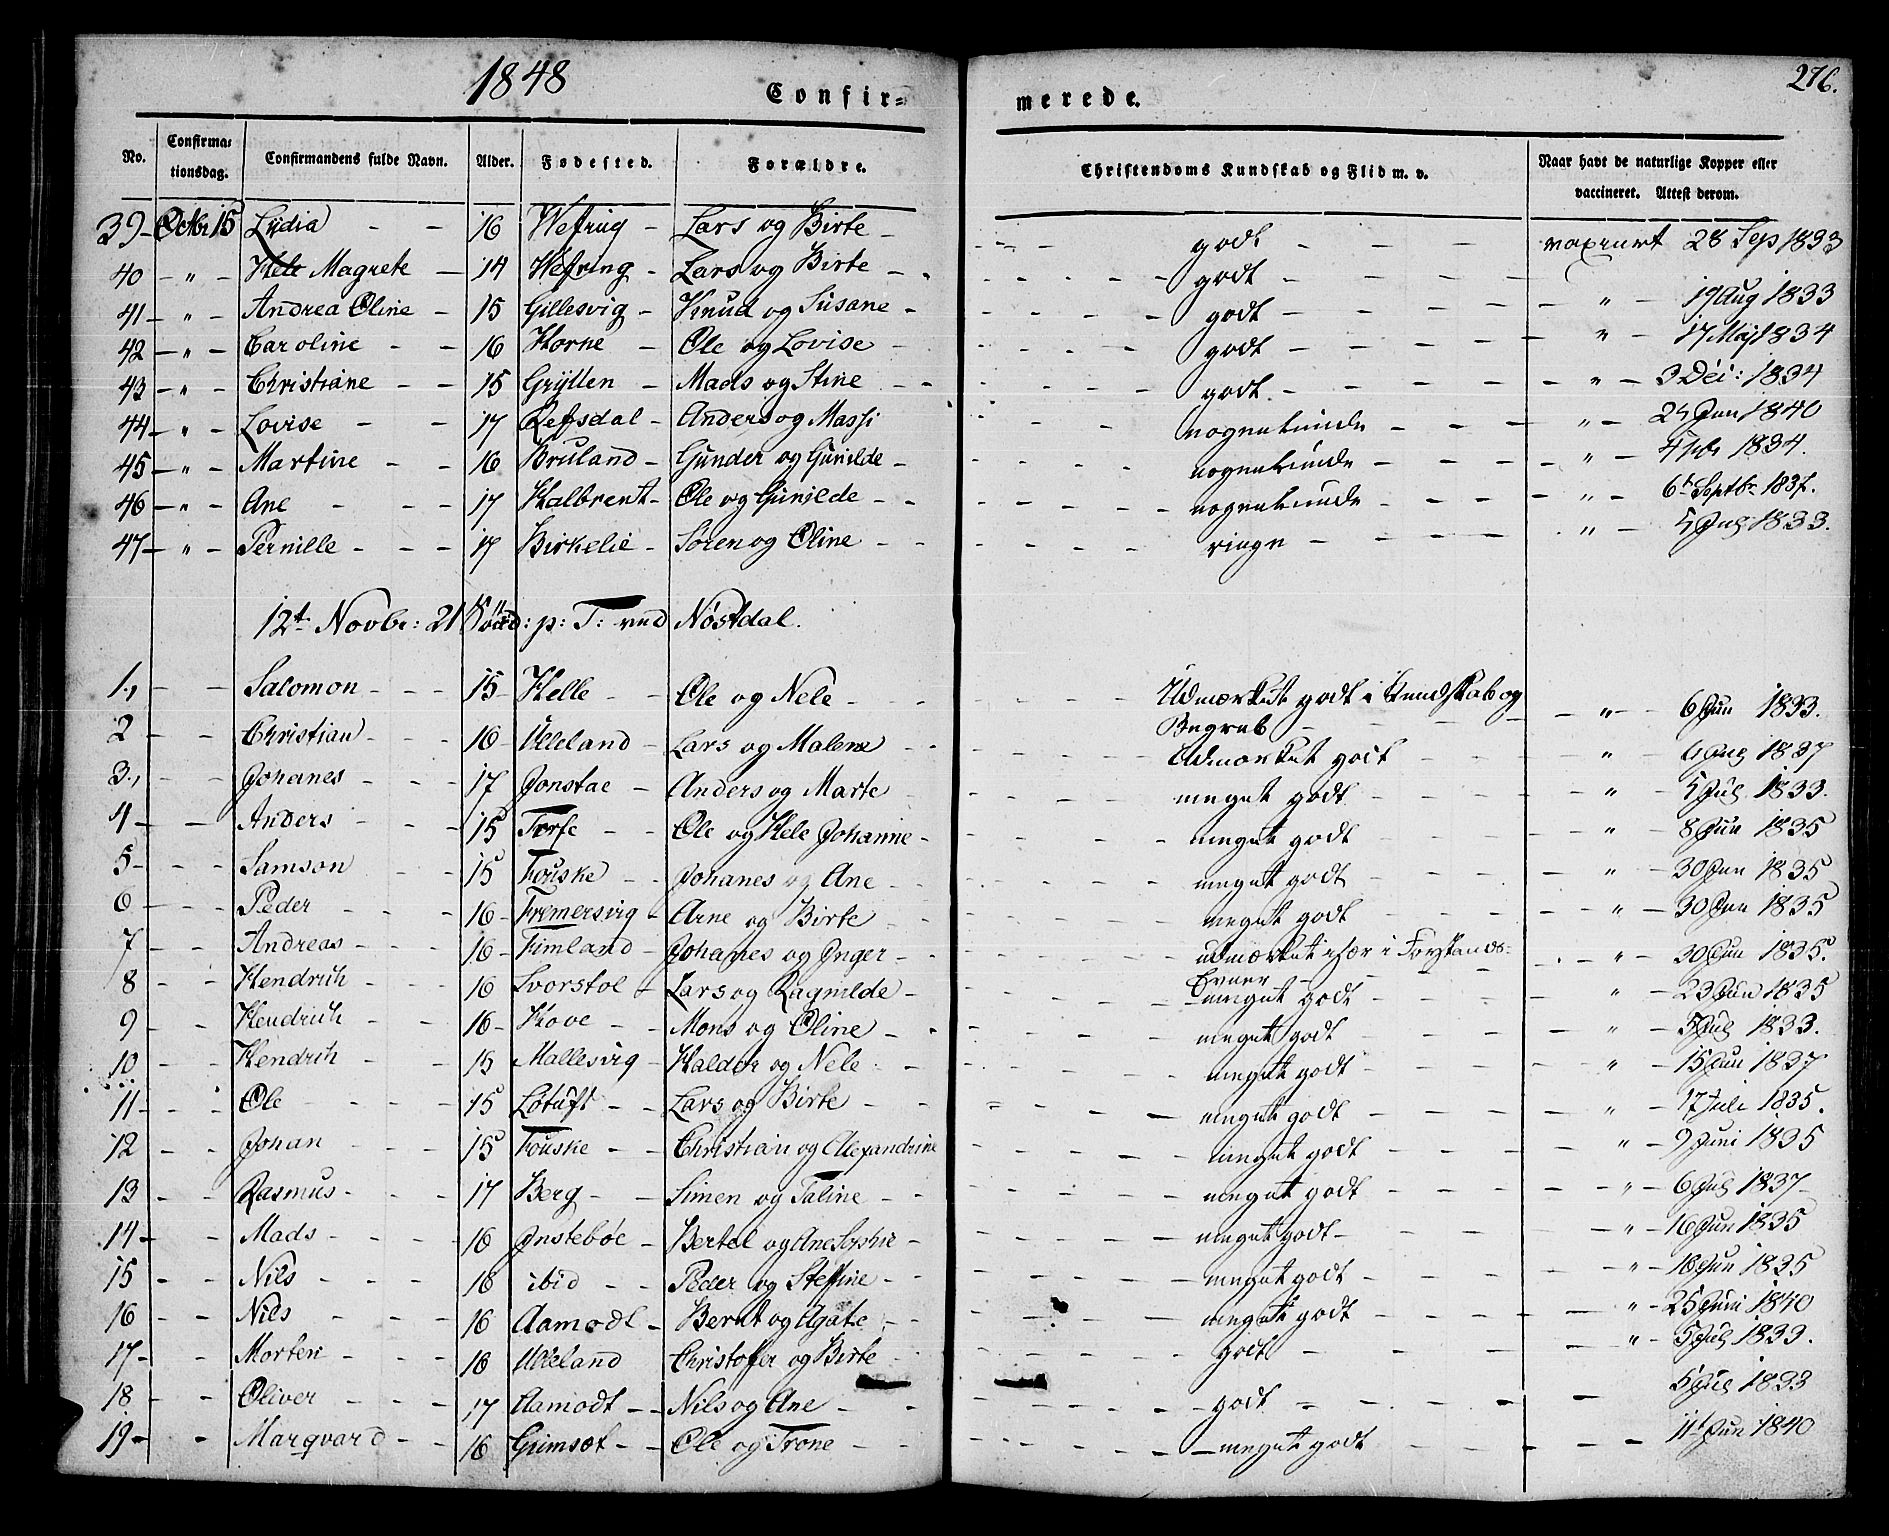 1848
276.
Confir-
merede.
No.
Confirma-
tionsdag.
Confirmandens fulde Navn.
Alder.
Fødested.
Forældre.
Christendoms Kundskab og Flid m. v.
Naar havt de naturlige Kopper eller
vaccineret. Attest derom.
39 - Octbr 15 Lydia - - 16 - Lars og Birte - godt - 28 Sep 1833
40 - " - Hele Magrete - 14 Lars og Birte - godt -
41 - " - Andrea Oline - 15 Gillesvig - Knud og Susane - godt - " - 19 Aug 1833
42 - " - Caroline - - 16 Horne - Ole og Lovise - godt - " - 17 Maj 1834
43 - " - Christiane - - 15 Gryllen - Mads og Stine - godt - " - 3 Dec: 1834
44 - " - Lovise - - 17 Refsdal - Anders og Massi nogenlunde - " - Jun 1840
45 - " - Martine - - 16 Bruland - Gunder og Gunilde - nogenlunde - " - 1834.
46 - " - Ane - - 17 Kalbrent - Ole og Gunilde - nogenlunde - " - 6t Septbr
47 - " - Pernille - - 17 Birkelie - Søren og Oline - ringe - " - 5 Jul 1833.
12te Novbr: 21 Sönd: p: T: ved Nöstdal.
1, - - Salomon - - 15 - Helle - - Ole og Nele - Udmærket godt i Kundskab og
Begreb - " - 6 Jun 1833.
2 - - Christian - - 16 - Ulleland - Lars og Malene - Udmærket godt - " Jul 1837
3, - - Johanes - - 17 Jonstae - Anders og Marte - meget godt - " 5 Jul 1833.
4 - - Anders - - 15 Torfe - - Ole og Hele Johanne - meget godt - " - 8 Jun 1835
5 - - Samson - - 15 Fouske - - Johanes og Ane - meget godt - " - 30 Jun 1835
6 - - Peder - - 16 - Fremersvig - Arne og Birte - meget godt - " - 30 Jun 1835
7 - - Andreas - - 16 - Fimland - Johanes og Inger - udmærket især i Forstands-
Evner - " - 30 Jun 1835.
8 - - Hendrich - - 16 Svorstøl - Lars og Ragnilde - meget godt - " - 23 Jun 1835
9 - - Hendrich - - 16 - Hove - - Mons og Oline - meget godt - " - 5 Jul 1833.
10 - - Hendrich - - 15 Mallesvig - Haldor og Nele - meget godt - " - 15 Jun 1837
11 - - Ole - - 15 Løtuft - - Lars og Birte - meget godt - " - 17 Juli 1835.
12 - - Johan - - 15 Fouske - Christian og Alexandrine meget godt - " - 9 Juni 1835
13 - - Rasmus - - 17 Berg - - Simen og Taline - meget godt - " - 6 Jul 1837
14 - - Mads - - 16 Instebøe - Bertel og Ane Sophie - meget godt - " - 16 Jun 1835
15 - - Nils - - 16 ibid - - Peder og Steffine - meget godt - " - 18 Jun 1835
16 - - Nils - - 16 Aamodt - Bernt og Agate - meget godt - " - 25 Juni 1840
17 - - Morten - - 16 Ulleland Christofer og Birte - godt - " - 5 Jul 1833.
18 - - Oliver - - 17 Aamodt - - Nils og Ane - godt - 5 Jul 1833
19 - - Marqvard - - 16 Grimset - - Ole og Trone - meget godt - 11t Jun 1840